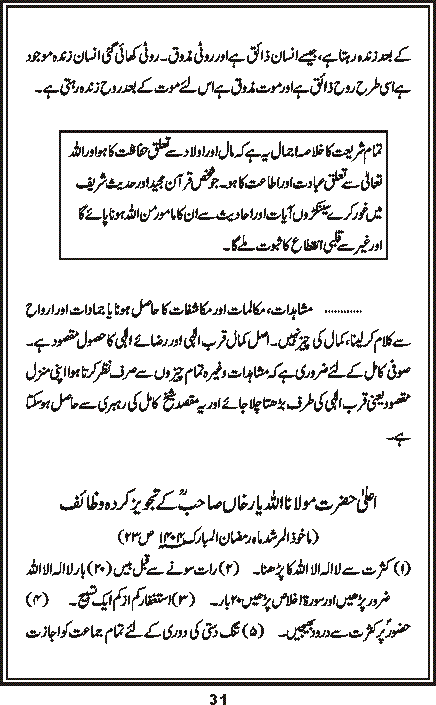 کے بعد زندہ رہتا ہے، جیسے انسان ذائق ہے اور روٹی مذوق۔ روٹی کھائی گئی انسان زندہ موجود
ہے اسی طرح روح ذائق ہے اور موت مذوق ہے اس لئے موت کے بعد روح زندہ رہتی ہے۔
تمام شریعت کا خلاصہ اجمال یہ ہے کہ مال اور اولاد سے تعلق حفاظت کا ہو اور اللہ
تعالیٰ سے تعلق عبادت اور اطاعت کا ہو۔ جو شخص قرآن مجید اور حدیث شریف
میں غور کرے سینکڑوں آیات اور احادیث سے ان کا مامور من اللہ ہونا پائے گا
اور غیر سے قلبی انقطاع کا ثبوت ملے گا۔
............ مشاہدات، مکالمات اور مکاشفات کا حاصل ہونا یا جمادات اور ارواح
سے کلام کر لینا، کمال کی چیز نہیں۔ اصل کمال قرب الٰہی اور رضائے الٰہی کا حصول مقصود ہے۔
صوفی کامل کے لئے ضروری ہے کہ مشاہدات وغیرہ تمام چیزوں سے صرف نظر کرتا ہوا اپنی منزل
مقصود یعنی قرب الٰہی کی طرف بڑھتا چلا جائے اور یہ مقصد شیخ کامل کی رہبری سے حاصل ہو سکتا
ہے۔
اعلیٰ حضرت مولانا اللہ یار خاں صاحبؒ کے تجویز کردہ وظائف
(ماخوذ المرشد ماہ رمضان المبارک ۱۴۰۴ ص ۲۳)
(۱) کثرت سے لا الہ الا اللہ کا پڑھنا۔ (۲) رات سونے سے قبل بیس (۲۰) بار لا الہ الا اللہ
ضرور پڑھیں اور سورۃ اخلاص پڑھیں ۲۰ بار۔ (۳) استغفار کم از کم ایک تسبیح۔ (۴)
حضورؐ پر کثرت سے درود بھیجیں۔ (۵) تنگ دستی کی دوری کے لئے تمام جماعت کو اجازت
31